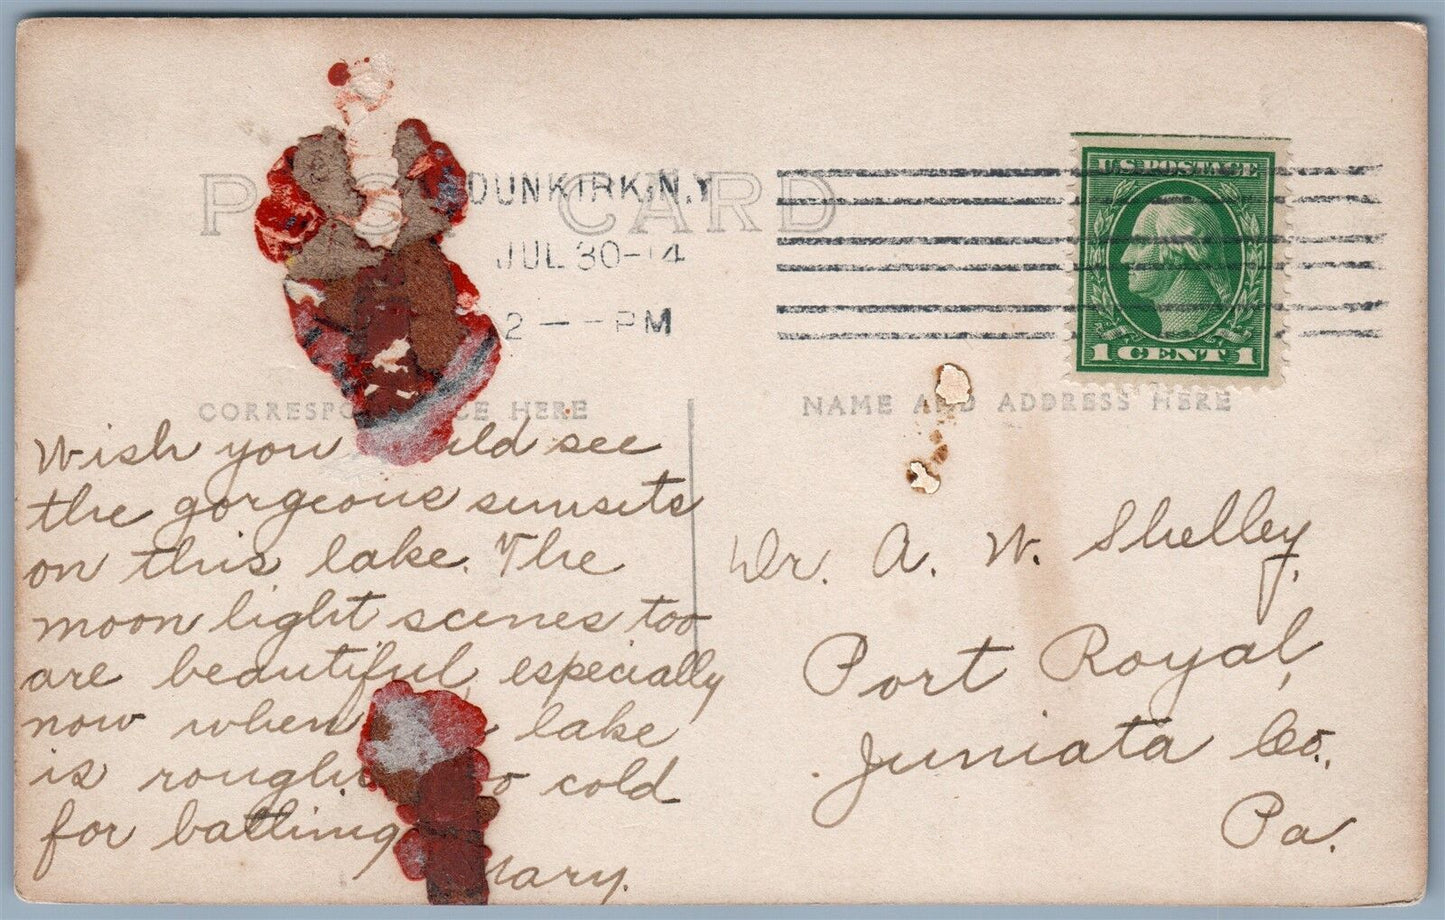 POST CARD
DUNKIRK, N.Y
JUL 30-14
2 — -PM
U.S. POSTAGE
1 CENT 1
CORRESPONDENCE HERE
NAME AND ADDRESS HERE
Wish you could see
the gorgeous sunsets
on this lake. The
moon light scenes too
are beautiful, especially
now when lake
is rough. too cold
for bathing
Mary.
Dr. A. W. Shelley,
Port Royal,
Juniata Co.,
Pa.